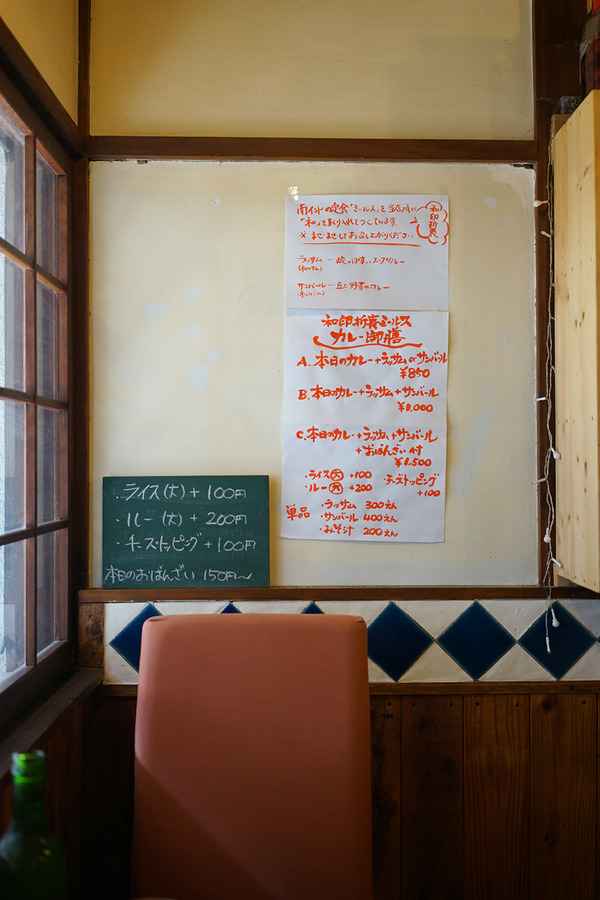 南インドの定食「ミールス」を当店風に
「和」を取り入れてつくっています。
※ まぜまぜしてお召し上がりください
和印折衷
ラッサム… 酸っぱ辛いスープカレー
サンバール… 豆と野菜のカレー
和印折衷ミールス
カレー御膳
A. 本日のカレー+ラッサム or サンバール
¥850
B. 本日のカレー+ラッサム+サンバール
¥1,000
C. 本日のカレー+ラッサム+サンバール
+おばんざい付
¥1,500
・ライス(大) +100
・ルー(大) +200
・チーズトッピング
+100
単品
・ラッサム 300えん
・サンバール 400えん
・みそ汁 200えん
・ライス(大)+100円
・ルー(大)+200円
・チーズトッピング+100円
本日のおばんざい 150円〜